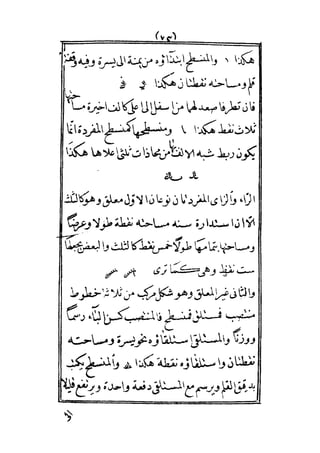 (٧٣)
هكذا ١ والمنسطح ابتداؤه من يمنة الى يسرة وفيه وقفة
قلم ومساحته نقطتان هكذا
فان تطرفا صعد لهما من اسفل الى على كالف اخيرة مساحتها
ثلاث نقط هكذا ١ ومنسطحها كمنسطح المفردة انما
يكون ربط شبه الالف من محاذات ثلثى اعلاها هكذا
الراء والزاى المفردتان نوعان الاول معلق وهو كالثلث
الا ان استدارة سنه مساحته نقطة طولا وعرضا
ومساحتها بتمامها طولا خمس نقط كالثلث والبعض يجعلها
ست نقط وهى كما ترى
والثانى غير المعلق وهو شكل مركب من ثلاثة خطوط
منتصب فمستلق فمنسطح فالمنتصب كسن الباء رسما
ووزنا والمستلقى استلقاؤه بتقويسة ومساحته
نقطتان واستلقاؤه نقطة هكذا والمنسطح يكتب
بدقيق القلم ويرسم مع المستلقى دفعة واحدة ويرتفع قليلا
الى